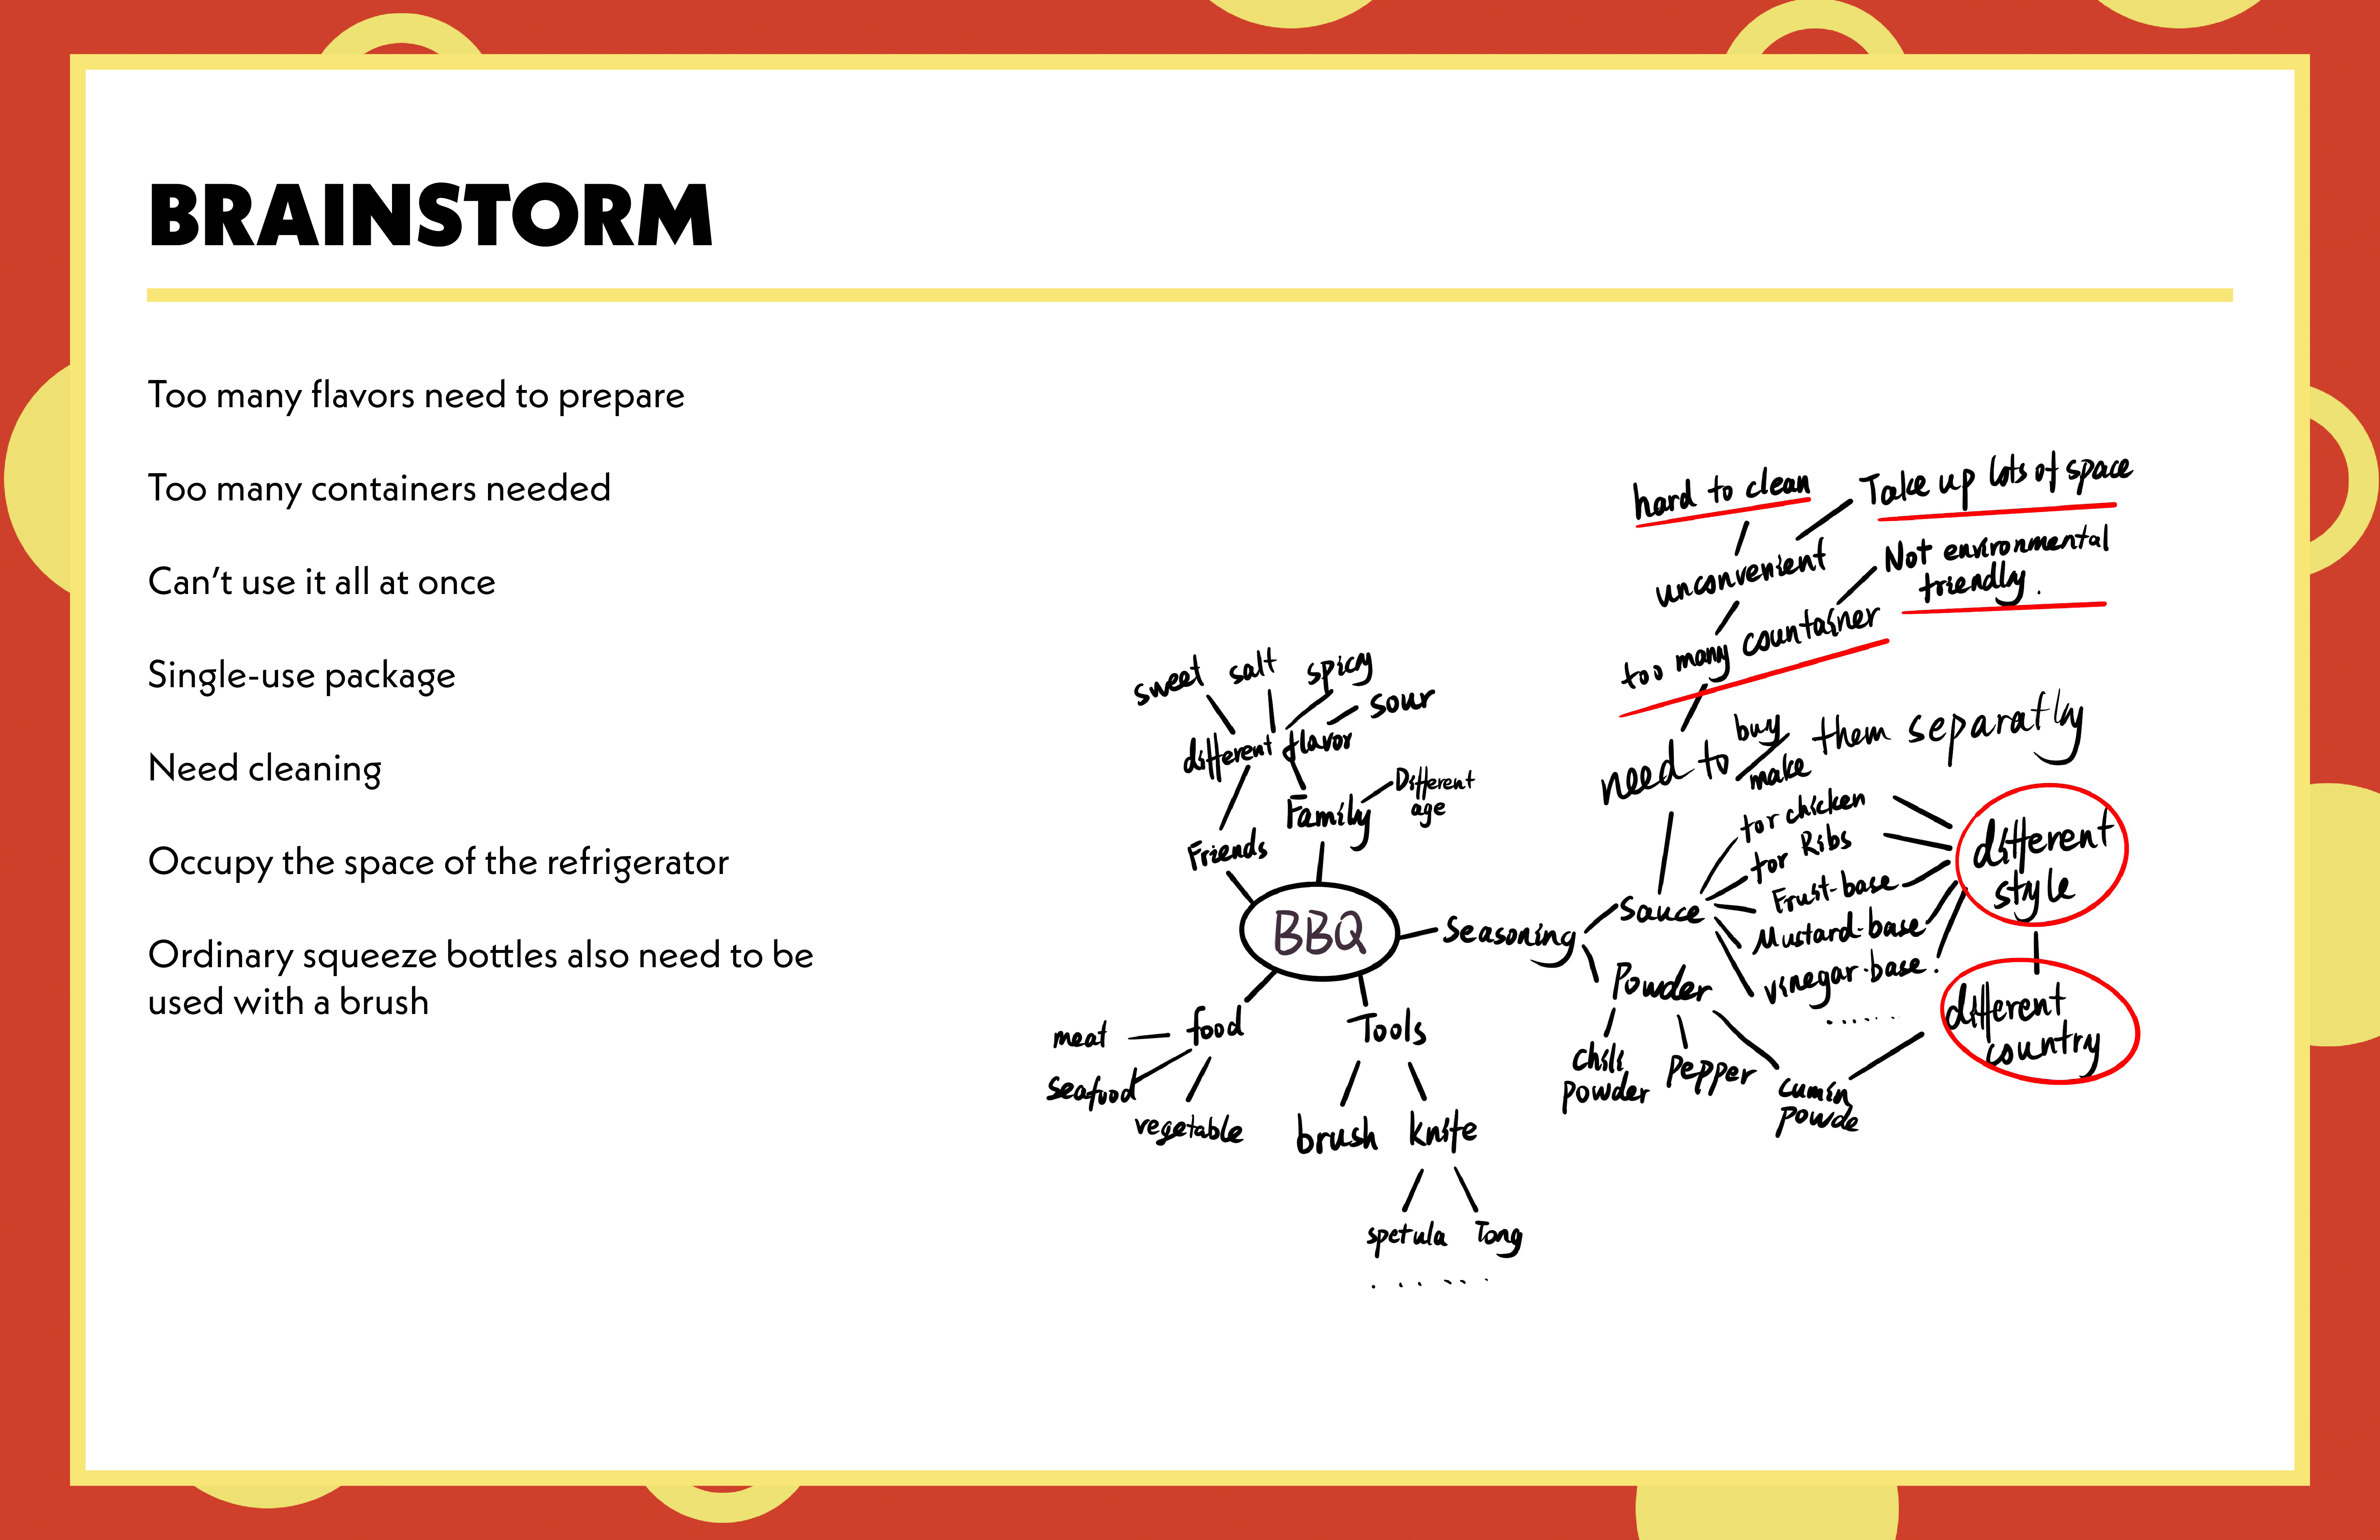 BRAINSTORM
Too many flavors need to prepare
Too many containers needed
Can't use it all at once
Single-use package
Need cleaning
Occupy the space of the refrigerator
Ordinary squeeze bottles also need to be
used with a brush
hard to clean
Take up lots of space
unconvenient
Not environmental
friendly.
too many countainer
need to buy/make them separatly
sweet
salt
spicy
sour
different flavor
Friends
Family
Different
age
BBQ
Seasoning
Sauce
for chicken
for Ribs
Fruit-base
Mustard-base
vinegar-base.
......
different
style
different
country
Powder
Chili
Powder
Pepper
cumin
powde
food
meat
seafood
vegetable
Tools
brush
knife
spetula
Tong
......